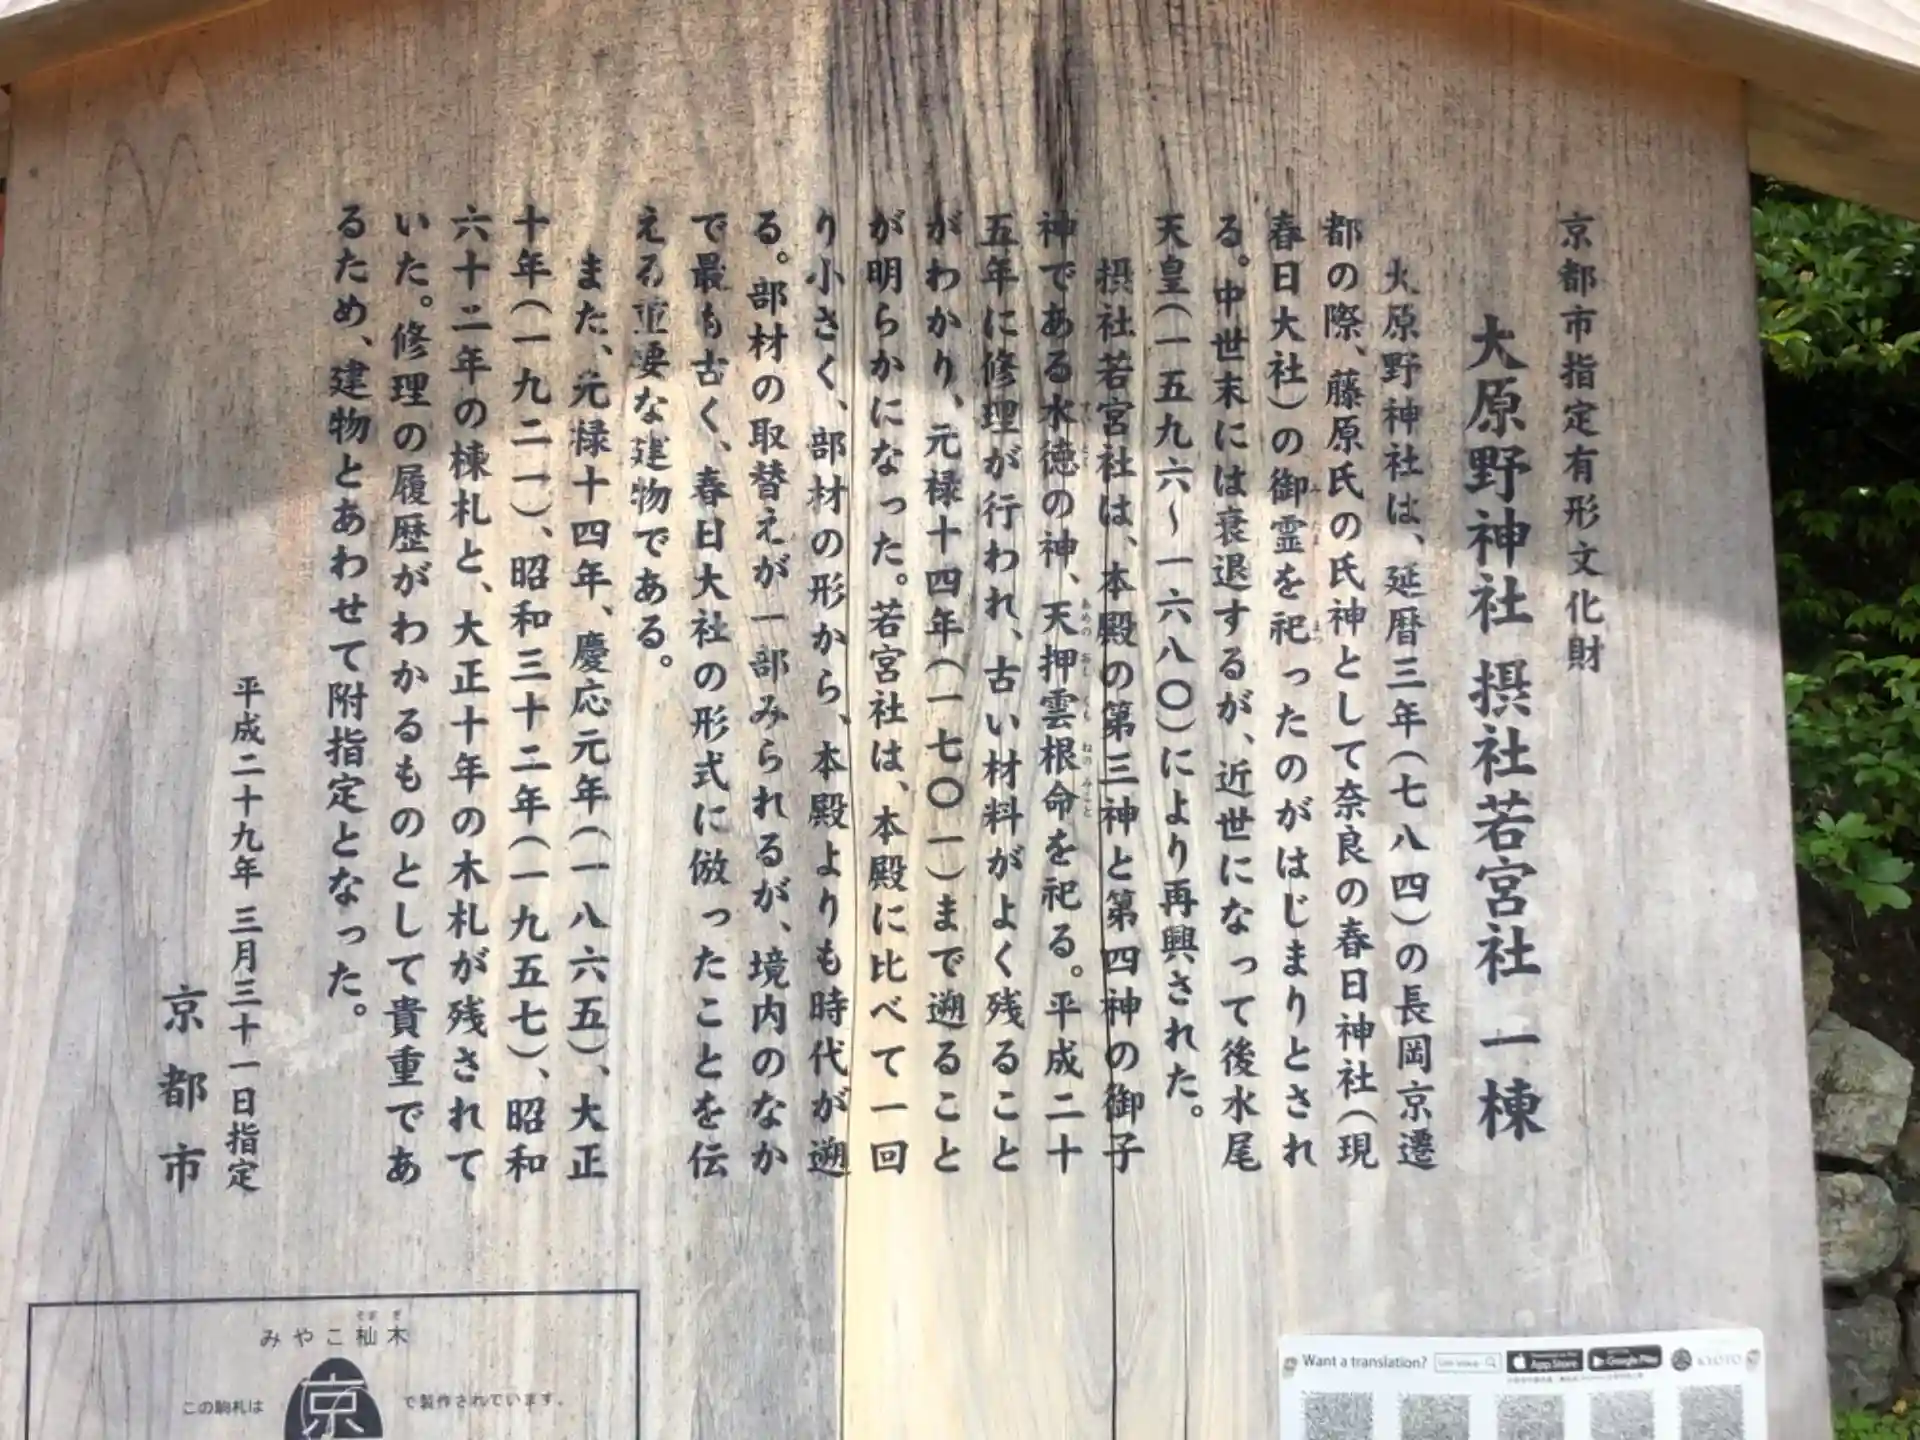 京都市指定有形文化財
大原野神社 摂社若宮社 一棟
大原野神社は、延暦三年(七八四)の長岡京遷
都の際、藤原氏の氏神として奈良の春日神社(現
春日大社)の御霊を祀ったのがはじまりとされ
る。中世末には衰退するが、近世になって後水尾
天皇(一五九六〜一六八〇)により再興された。
摂社若宮社は、本殿の第三神と第四神の御子
神である水徳の神、天押雲根命を祀る。平成二十
五年に修理が行われ、古い材料がよく残ること
がわかり、元禄十四年(一七〇一)まで遡ること
が明らかになった。若宮社は、本殿に比べて一回
り小さく、部材の形から、本殿よりも時代が遡
る。部材の取替えが一部みられるが、境内のなか
で最も古く、春日大社の形式に倣ったことを伝
える重要な建物である。
また、元禄十四年、慶応元年(一八六五)、大正
十年(一九二一)、昭和三十二年(一九五七)、昭和
六十二年の棟札と、大正十年の木札が残されて
いた。修理の履歴がわかるものとして貴重であ
るため、建物とあわせて附指定となった。
平成二十九年 三月三十一日指定
京都市
みやこ杣木
この駒札は 京 で製作されています。
Want a translation?
App Store
Google Play
KYOTO